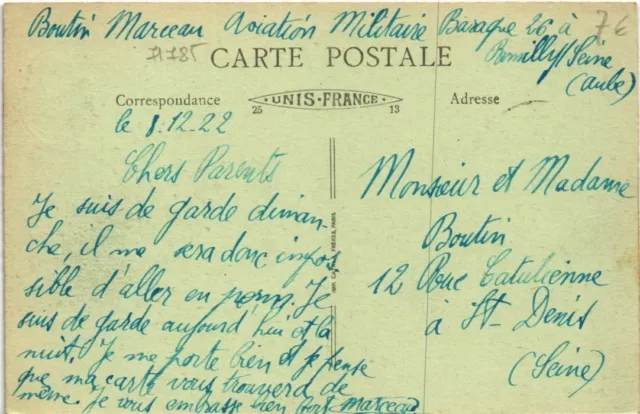 Boutin Marceau Aviation Militaire Baraque 26 à
Romilly/Seine
(Aube)
7€
A785
CARTE POSTALE
Correspondance
UNIS-FRANCE
25
13
Adresse
le 8.12.22
Chers Parents
Je suis de garde diman-
che, il me sera donc impos
sible d'aller en perm. Je
suis de garde aujourd'hui et la
nuit. Je me porte bien et je pense
que ma carte vous trouvera de
même. Je vous embrasse bien fort Marceau
FRÈRES, PARIS
Monsieur et Madame
Boutin
12 Rue Catulienne
à St-Denis
(Seine)